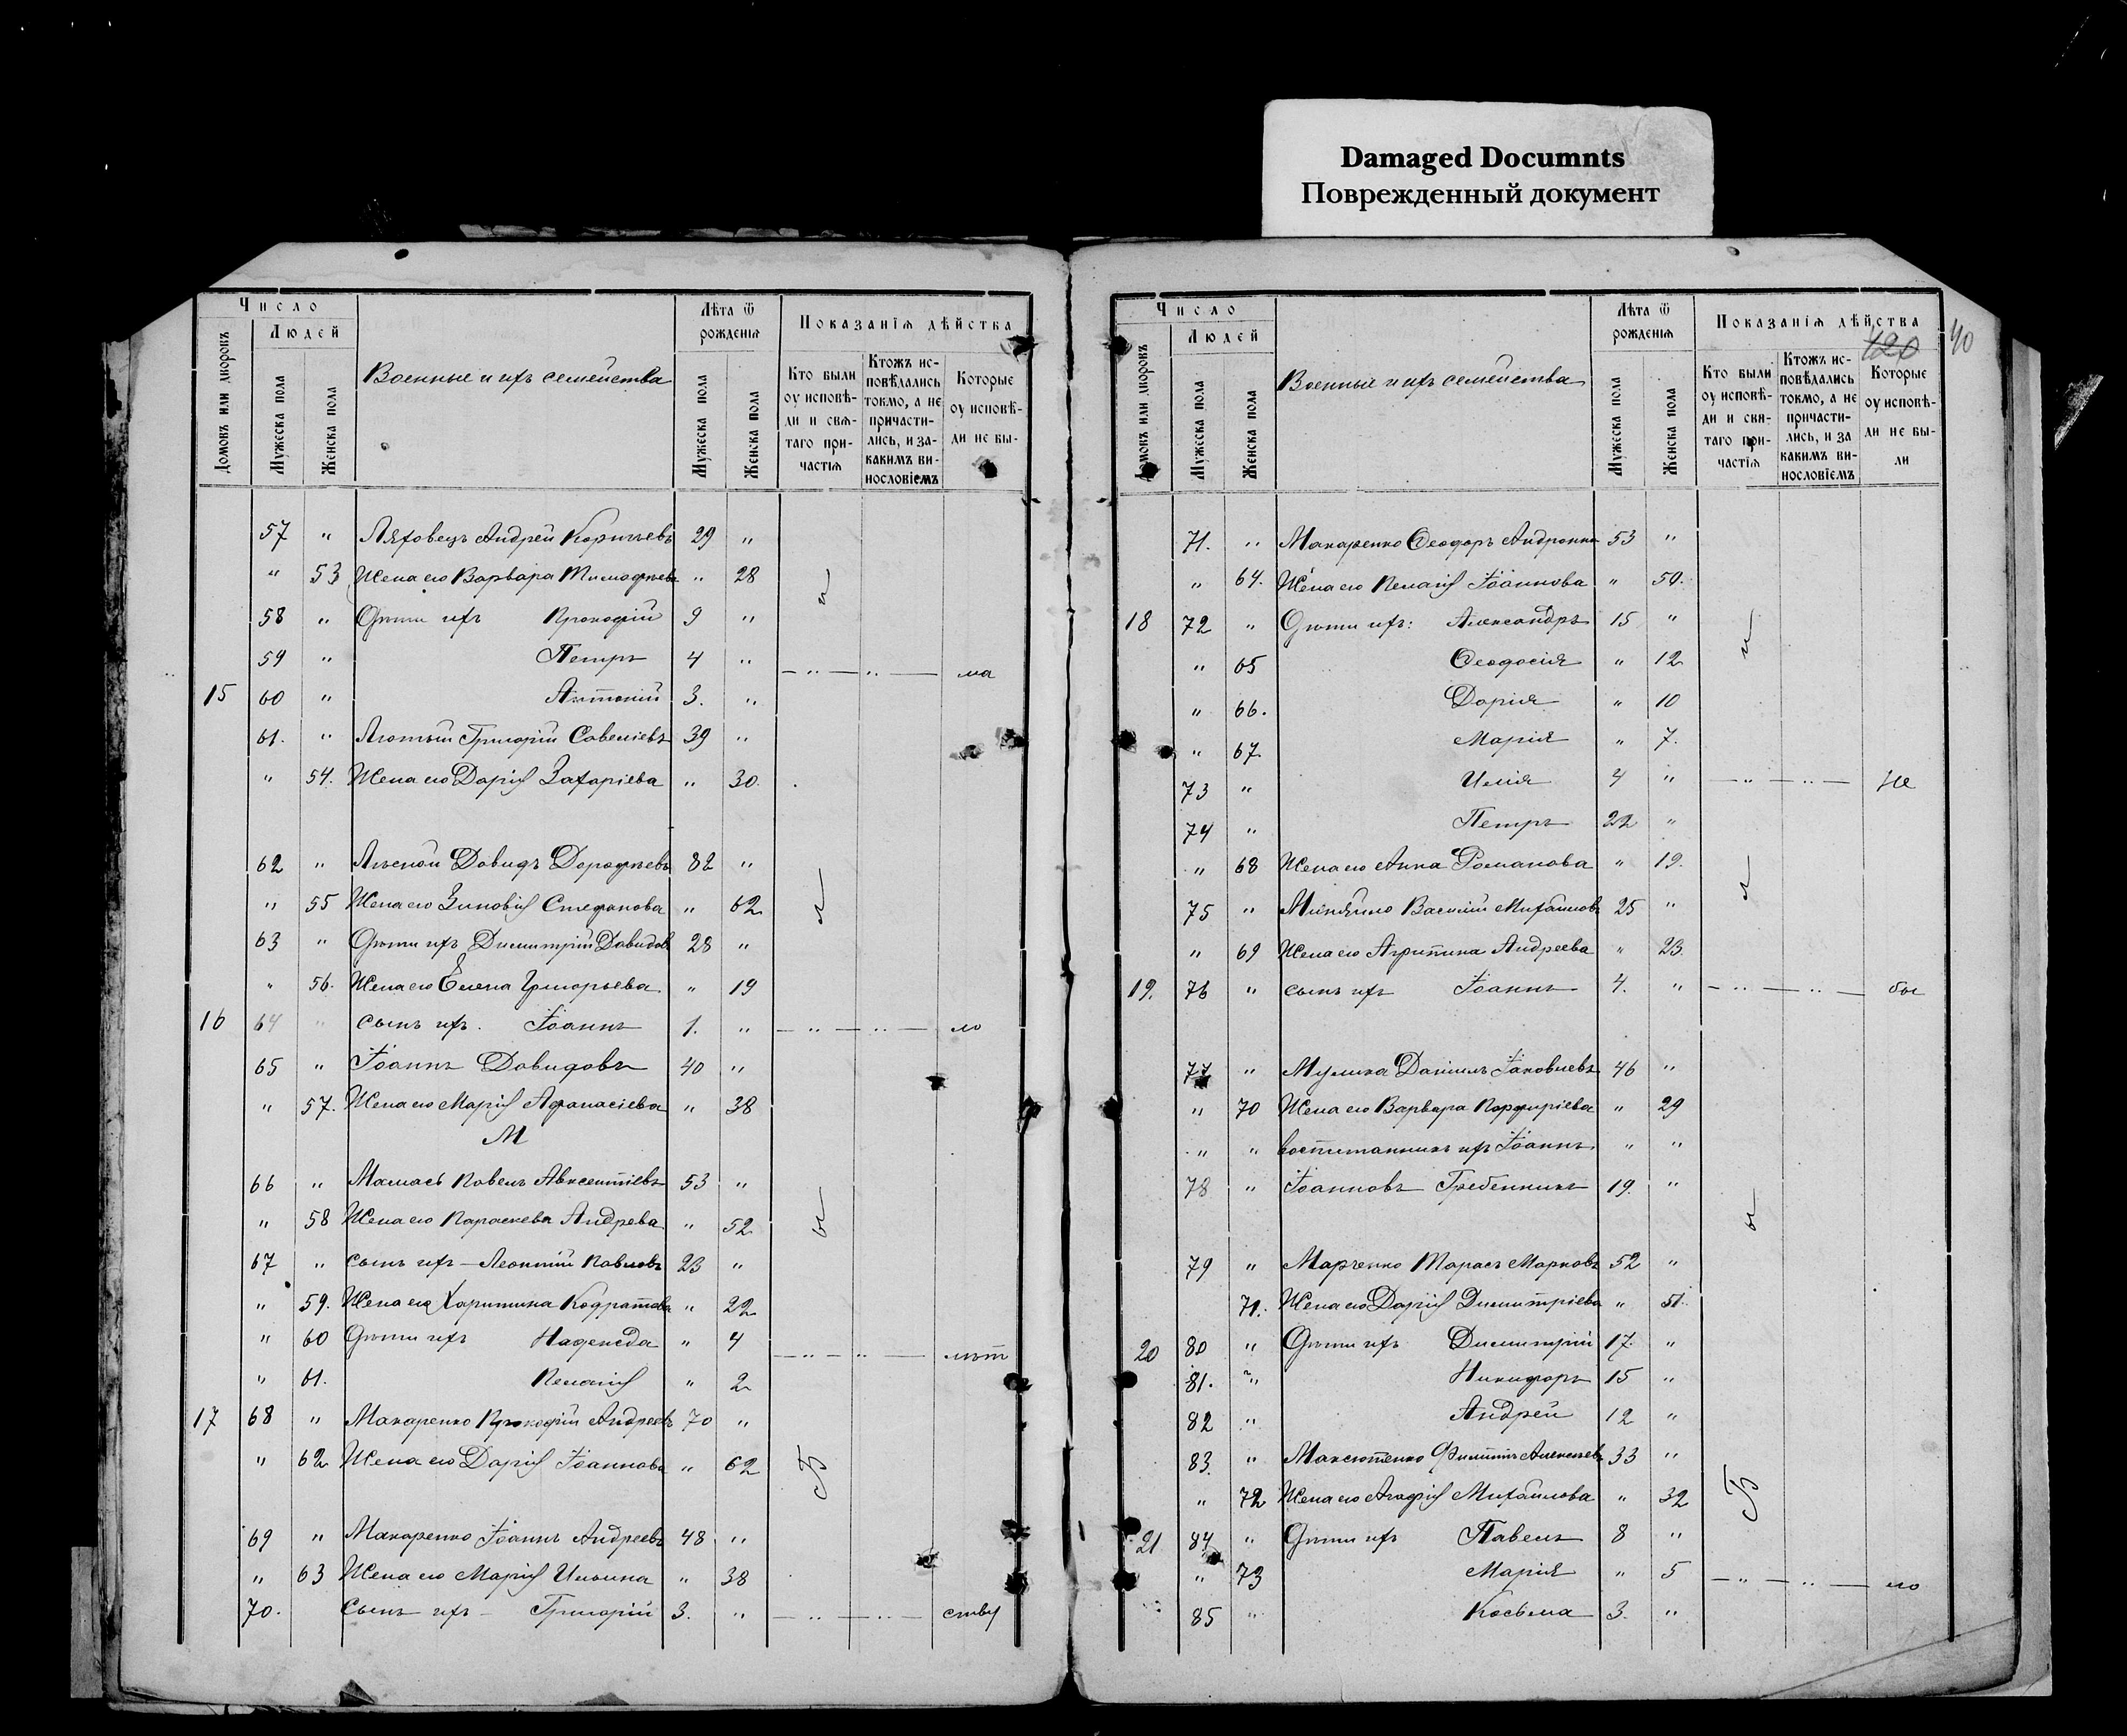 Damaged Documnts
Поврежденный документ
Число
Людей
Домовъ или дворовъ
Мужеска пола
Женска пола
Военные и ихъ семейства
Лѣта ѿ рожденія
Мужеска пола
Женска пола
Показанія дѣйства
Кто были оу исповѣди и свѧтаго причастіѧ
Ктожъ исповѣдались токмо, а не причастились, и за какимъ винословіемъ
Которые оу исповѣди не бы-
57 " Ляховецъ Андрей Корнѣевъ 29 "
" 53 Жена его Варвара Тимофѣева " 28
58 " Дѣти ихъ Прокофій 9 "
59 " Петръ 4 " — " — " — ма
15 60 " Антоній 3. "
61. " Лютый Григорій Савеліевъ 39 "
" 54. Жена его Дарія Захаріева " 30.
62 " Давидъ Дорофѣевъ 82 "
" 55 Жена его Зиновія Стефанова " 62
63 " Дѣти ихъ Димитрій Давидов 28 "
" 56. Жена его Елена Григорьева " 19
16 64 " сынъ ихъ. Іоаннъ 1. " — " — " — ло
65 " Іоаннъ Давидовъ 40 "
" 57. Жена его Марія Афанасіева " 38
М
66 " Павелъ Авксентіевъ 53 "
" 58 Жена его Параскева Андрева " 52
67 " сынъ ихъ — Леонтій Павловъ 23 "
" 59. Жена его Харитина Кодратова " 22
" 60 Дѣти ихъ Надежда " 4
— " — " — лѣт
" 61. Пелагія " 2
17 68 " Макаренко Прокофій Андреевъ 70 "
" 62 Жена его Дарія Іоаннова " 62
69 " Макаренко Іоаннъ Андреевъ 48 "
" 63 Жена его Марія Ильина " 38
70. Сынъ ихъ — Григорій 3. " — " — " — ству
Число
Людей
Домовъ или дворовъ
Мужеска пола
Женска пола
Военные и ихъ семейства
Лѣта ѿ рожденія
Мужеска пола
Женска пола
Показанія дѣйства
420 40
Кто были оу исповѣди и свѧтаго причастіѧ
Ктожъ исповѣдались токмо, а не причастились, и за какимъ винословіемъ
Которые оу исповѣди не были
71. " Макаренко Ѳеодоръ 53 "
" 64. Жена его Пелагія Іоаннова " 50.
18 72 " Дѣти ихъ: Александръ 15 "
" 65 Ѳеодосія " 12
" 66. Дарія " 10
" 67. Марія " 7.
73 " Илія 4 " — " — " — не
74 " Петръ 22 "
" 68 Жена его Анна Романова " 19.
75 " Василій Михайловъ 25 "
" 69 Жена его Агрипина Андреева " 23.
19. 76 " сынъ ихъ Іоаннъ 4. " — " — " — бы
77 " Даніилъ Іаковлевъ 46 "
" 70 Жена его Варвара Порфиріева " 29
" " воспитанникъ ихъ Іоаннъ " "
78 " Іоанновъ Гребенникъ 19. "
79 " Марченко Тарасъ Марковъ 52 "
71. Жена его Дарія Димитріева " 51.
20 80 " Дѣти ихъ Димитрій 17. "
81. " Никифоръ 15 "
82 " Андрей 12 "
83. " Максютенко Филиппъ Алексѣевъ 33 "
" 72 Жена его Агафія Михайлова " 32
21 84 " Дѣти ихъ Павелъ 8 "
" 73 Марія " 5 — " — " — ло
85 " Косьма 3. "